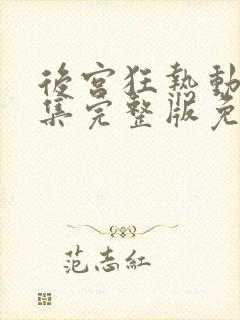 後宮狂熱動
集完整版免
范志紅